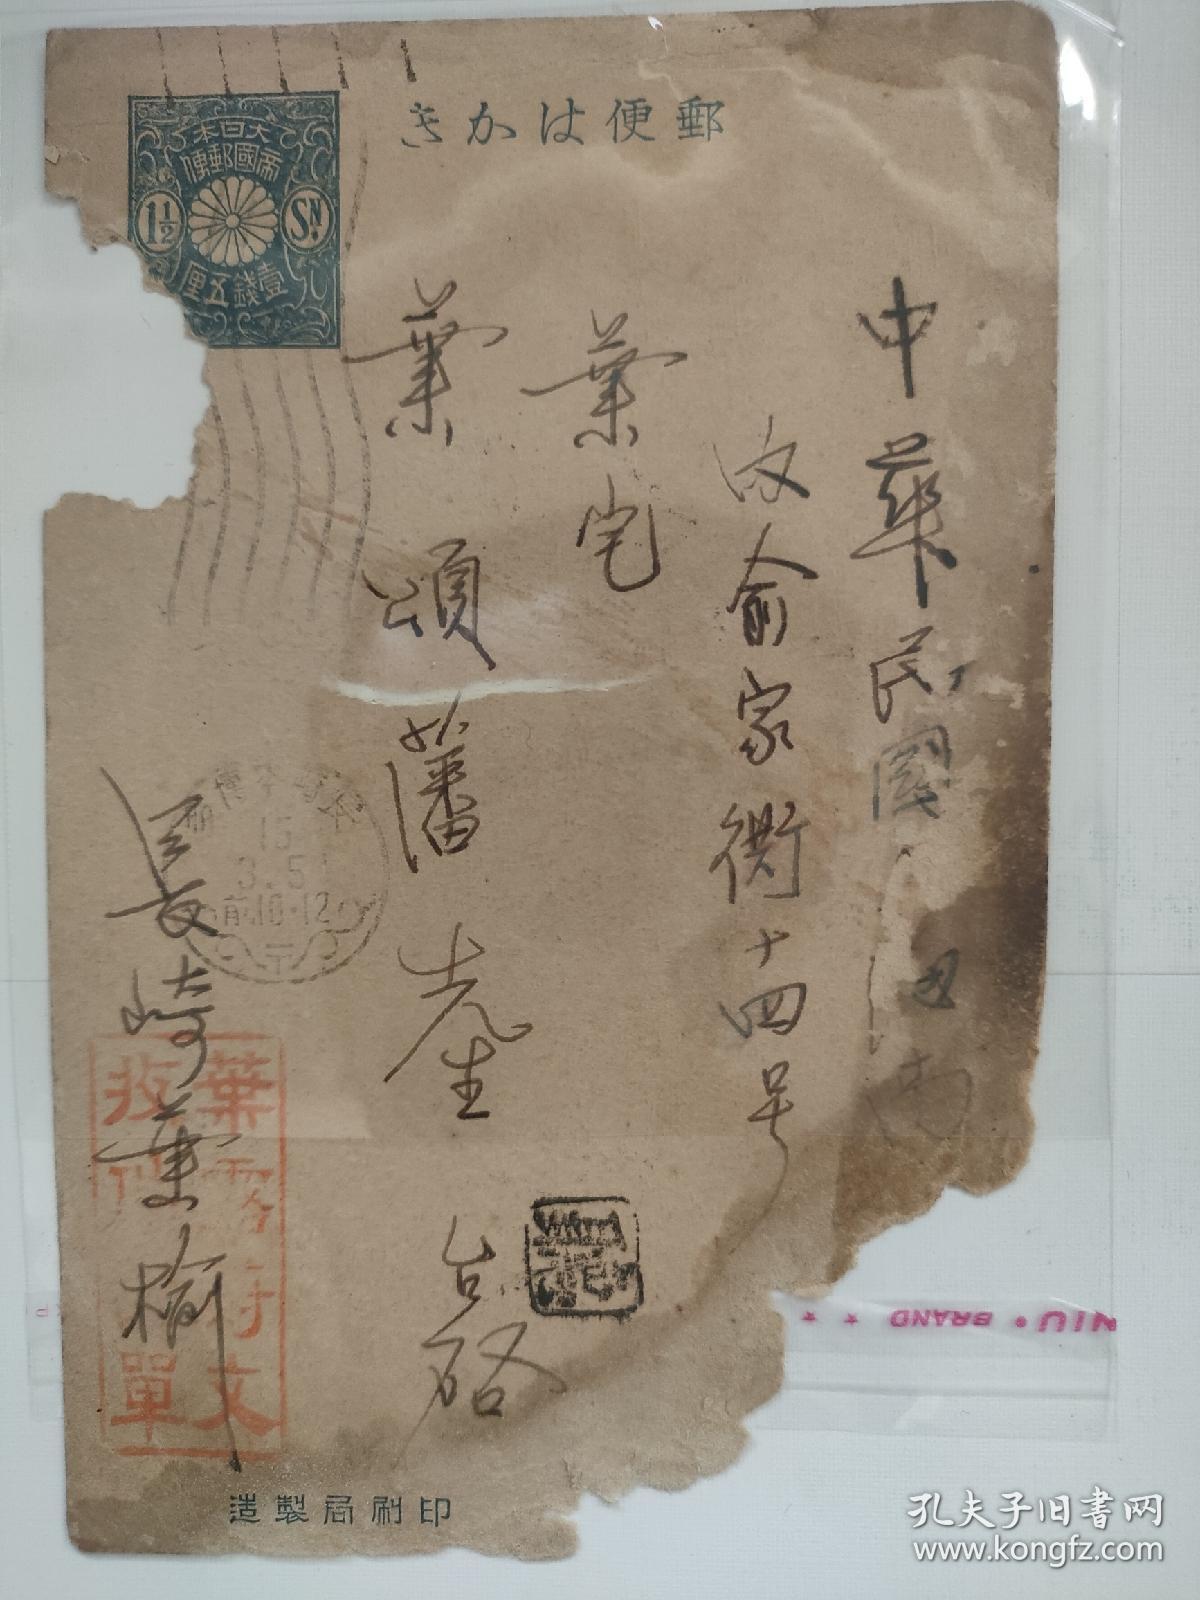 郵便はかき
大日本
帝國郵便
1½ SN.
壹錢五厘
中華民國
俞家衖十四号
葉宅
葉頌藩先生 台啓
長崎葉榆
15
3.5
前10-12
葉
文
收
單
印刷局製造
NIU • BRAND ★ ★
孔夫子旧书网
www.kongfz.com